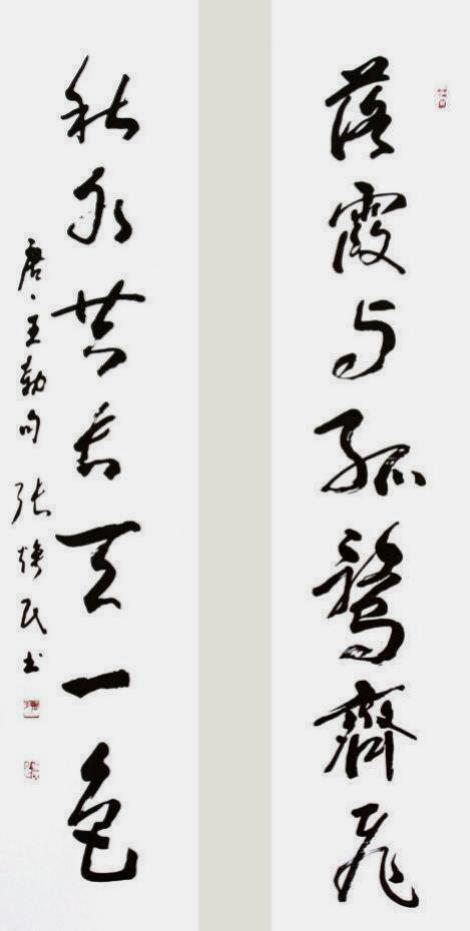 落霞与孤鹜齊飛
秋水共長天一色
唐·王勃句 张焕民书